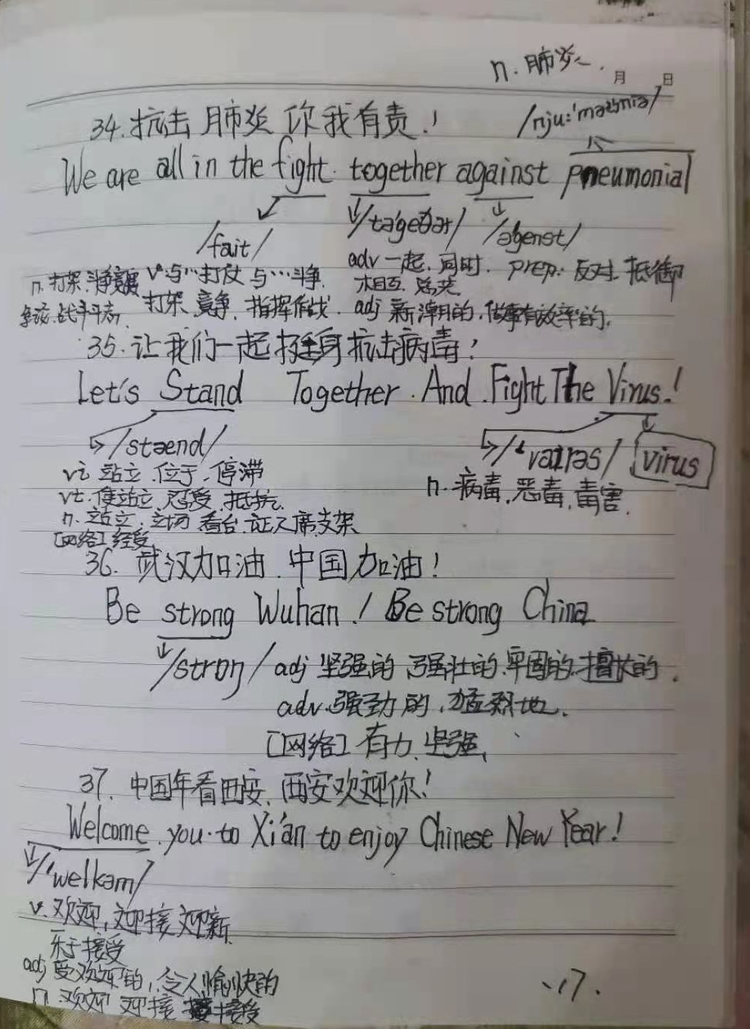 n. 肺炎
月 日
34. 抗击肺炎 你我有责!
/nju:'məʊniə/
We are all in the fight together against pneumonial
/fait/ /təgeðər/ /əgenst/
n. 打架 斗争 竞赛 v. 与…打仗 与…斗争 adv 一起, 同时. prep. 反对, 抵御
争论, 战斗 斗志 打架, 竞争, 指挥作战 相互
adj 新潮的, 做事有效率的.
35. 让我们一起挺身抗击病毒!
Let's Stand Together. And. Fight The Virus!
/staend/ /'vairəs/ virus
vi 站立, 位于, 停滞 n. 病毒, 恶毒, 毒害.
vt. 使站立, 忍受, 抵抗.
n. 站立, 立场, 看台, 证人席, 支架
[网络] 经受
36. 武汉加油. 中国加油!
Be strong Wuhan! Be strong China
/strɒŋ/ adj 坚强的, 强壮的, 牢固的, 擅长的.
adv. 强劲的, 猛烈地.
[网络] 有力, 坚强,
37. 中国年看西安, 西安欢迎你!
Welcome you to Xi'an to enjoy Chinese New Year!
/'welkəm/
v. 欢迎, 迎接, 迎新
乐于接受
adj 受欢迎的, 令人愉快的
n. 欢迎 迎接 接受
17.